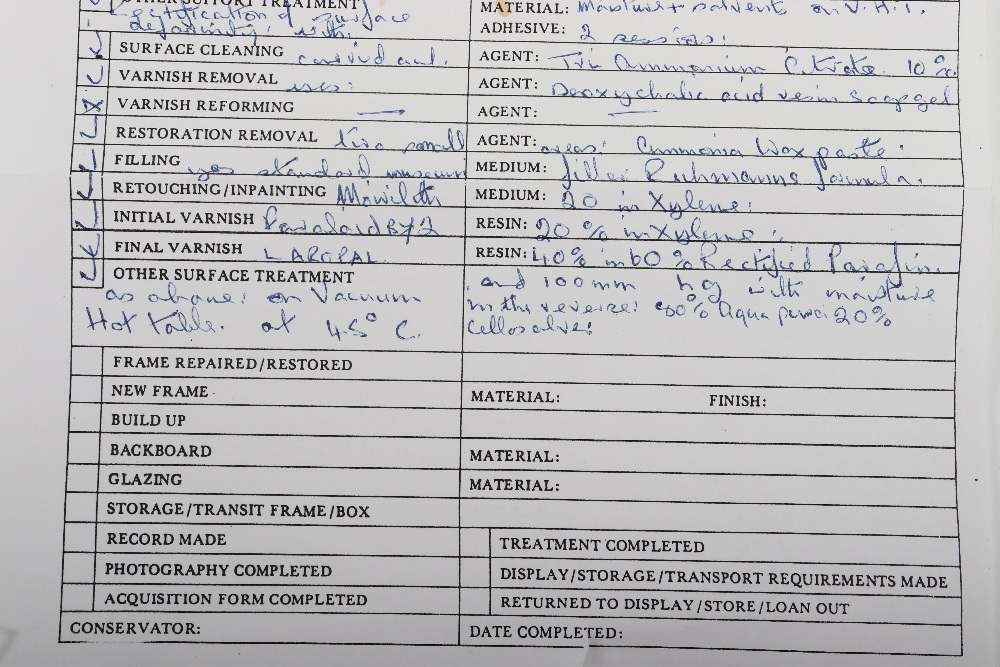 OTHER SUPPORT TREATMENT MATERIAL: Moisture + solvents on V.H.T.
of surface ADHESIVE: 2 sessions:
deformity: with
SURFACE CLEANING carried out. AGENT: Tri Ammonium Citrate 10%
VARNISH REMOVAL yes: AGENT: Deoxycholic acid resin Soap gel
VARNISH REFORMING — AGENT: —
RESTORATION REMOVAL two small AGENT: areas: Ammonia Wax paste.
FILLING yes standard museum MEDIUM: filler Ruhmanns formula.
RETOUCHING/INPAINTING Mowilith MEDIUM: 20 in Xylene:
INITIAL VARNISH Paraloid B72 RESIN: 20% in Xylene:
FINAL VARNISH LAROPAL RESIN: 40% in 60% Rectified Parafin.
OTHER SURFACE TREATMENT and 100mm hg with moisture
as above: on Vacuum in the reverse: 80% Aqua pura: 20%
Hot table. at 45° C. cellosolve:
FRAME REPAIRED/RESTORED
NEW FRAME MATERIAL: FINISH:
BUILD UP
BACKBOARD MATERIAL:
GLAZING MATERIAL:
STORAGE/TRANSIT FRAME/BOX
RECORD MADE TREATMENT COMPLETED
PHOTOGRAPHY COMPLETED DISPLAY/STORAGE/TRANSPORT REQUIREMENTS MADE
ACQUISITION FORM COMPLETED RETURNED TO DISPLAY/STORE/LOAN OUT
CONSERVATOR: DATE COMPLETED: